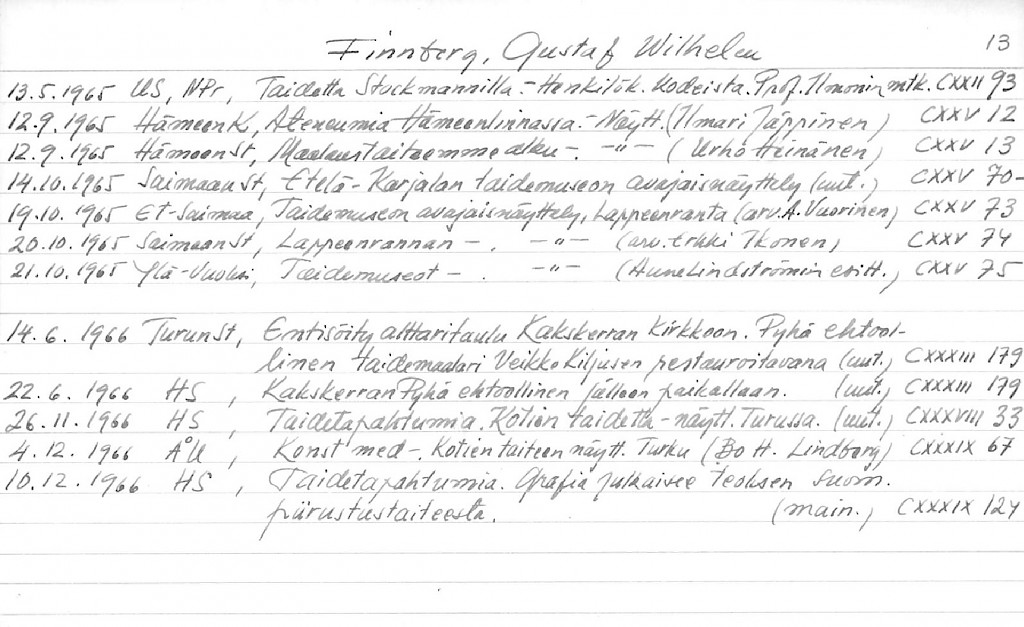 Finnberg, Gustaf Wilhelm 13
13.5.1965 US, NPr, Taidetta Stockmannilla. - Henkilök. kodeista. Prof. Ilmonin mtk. CXXII 93
12.9.1965 HämeenK, Ateneumia Hämeenlinnassa. - Näytt. (Ilmari Jäppinen) CXXV 12
12.9.1965 HämeenSt, Maalaustaiteemme alku -. -"- (Urho Heinänen) CXXV 13
14.10.1965 SaimaanSt, Etelä-Karjalan taidemuseon avajaisnäyttely (uut.) CXXV 70-
19.10.1965 Et-Saimaa, Taidemuseon avajaisnäyttely, Lappeenranta (arv. A. Vuorinen) CXXV 73
20.10.1965 SaimaanSt, Lappeenrannan -. -"- (arv. Erkki Ikonen) CXXV 74
21.10.1965 Ylä-Vuoksi, Taidemuseot -. -"- (Aune Lindströmin esitt.) CXXV 75
14.6.1966 TurunSt, Entisöity alttaritaulu Kakskerran Kirkkoon. Pyhä ehtool-
linen taidemaalari Veikko Kiljusen restauroitavana (uut.) CXXXIII 179
22.6.1966 HS, Kakskerran Pyhä ehtoollinen jälleen paikallaan. (uut.) CXXXIII 179
26.11.1966 HS, Taidetapahtumia. Kotien taidetta - näytt. Turussa. (uut.) CXXXVIII 33
4.12.1966 ÅU, Konst med -. Kotien taiteen näytt. Turku (Bo H. Lindberg) CXXXIX 67
10.12.1966 HS, Taidetapahtumia. Grafia julkaisee teoksen suom.
piirustustaiteesta. (main.) CXXXIX 124